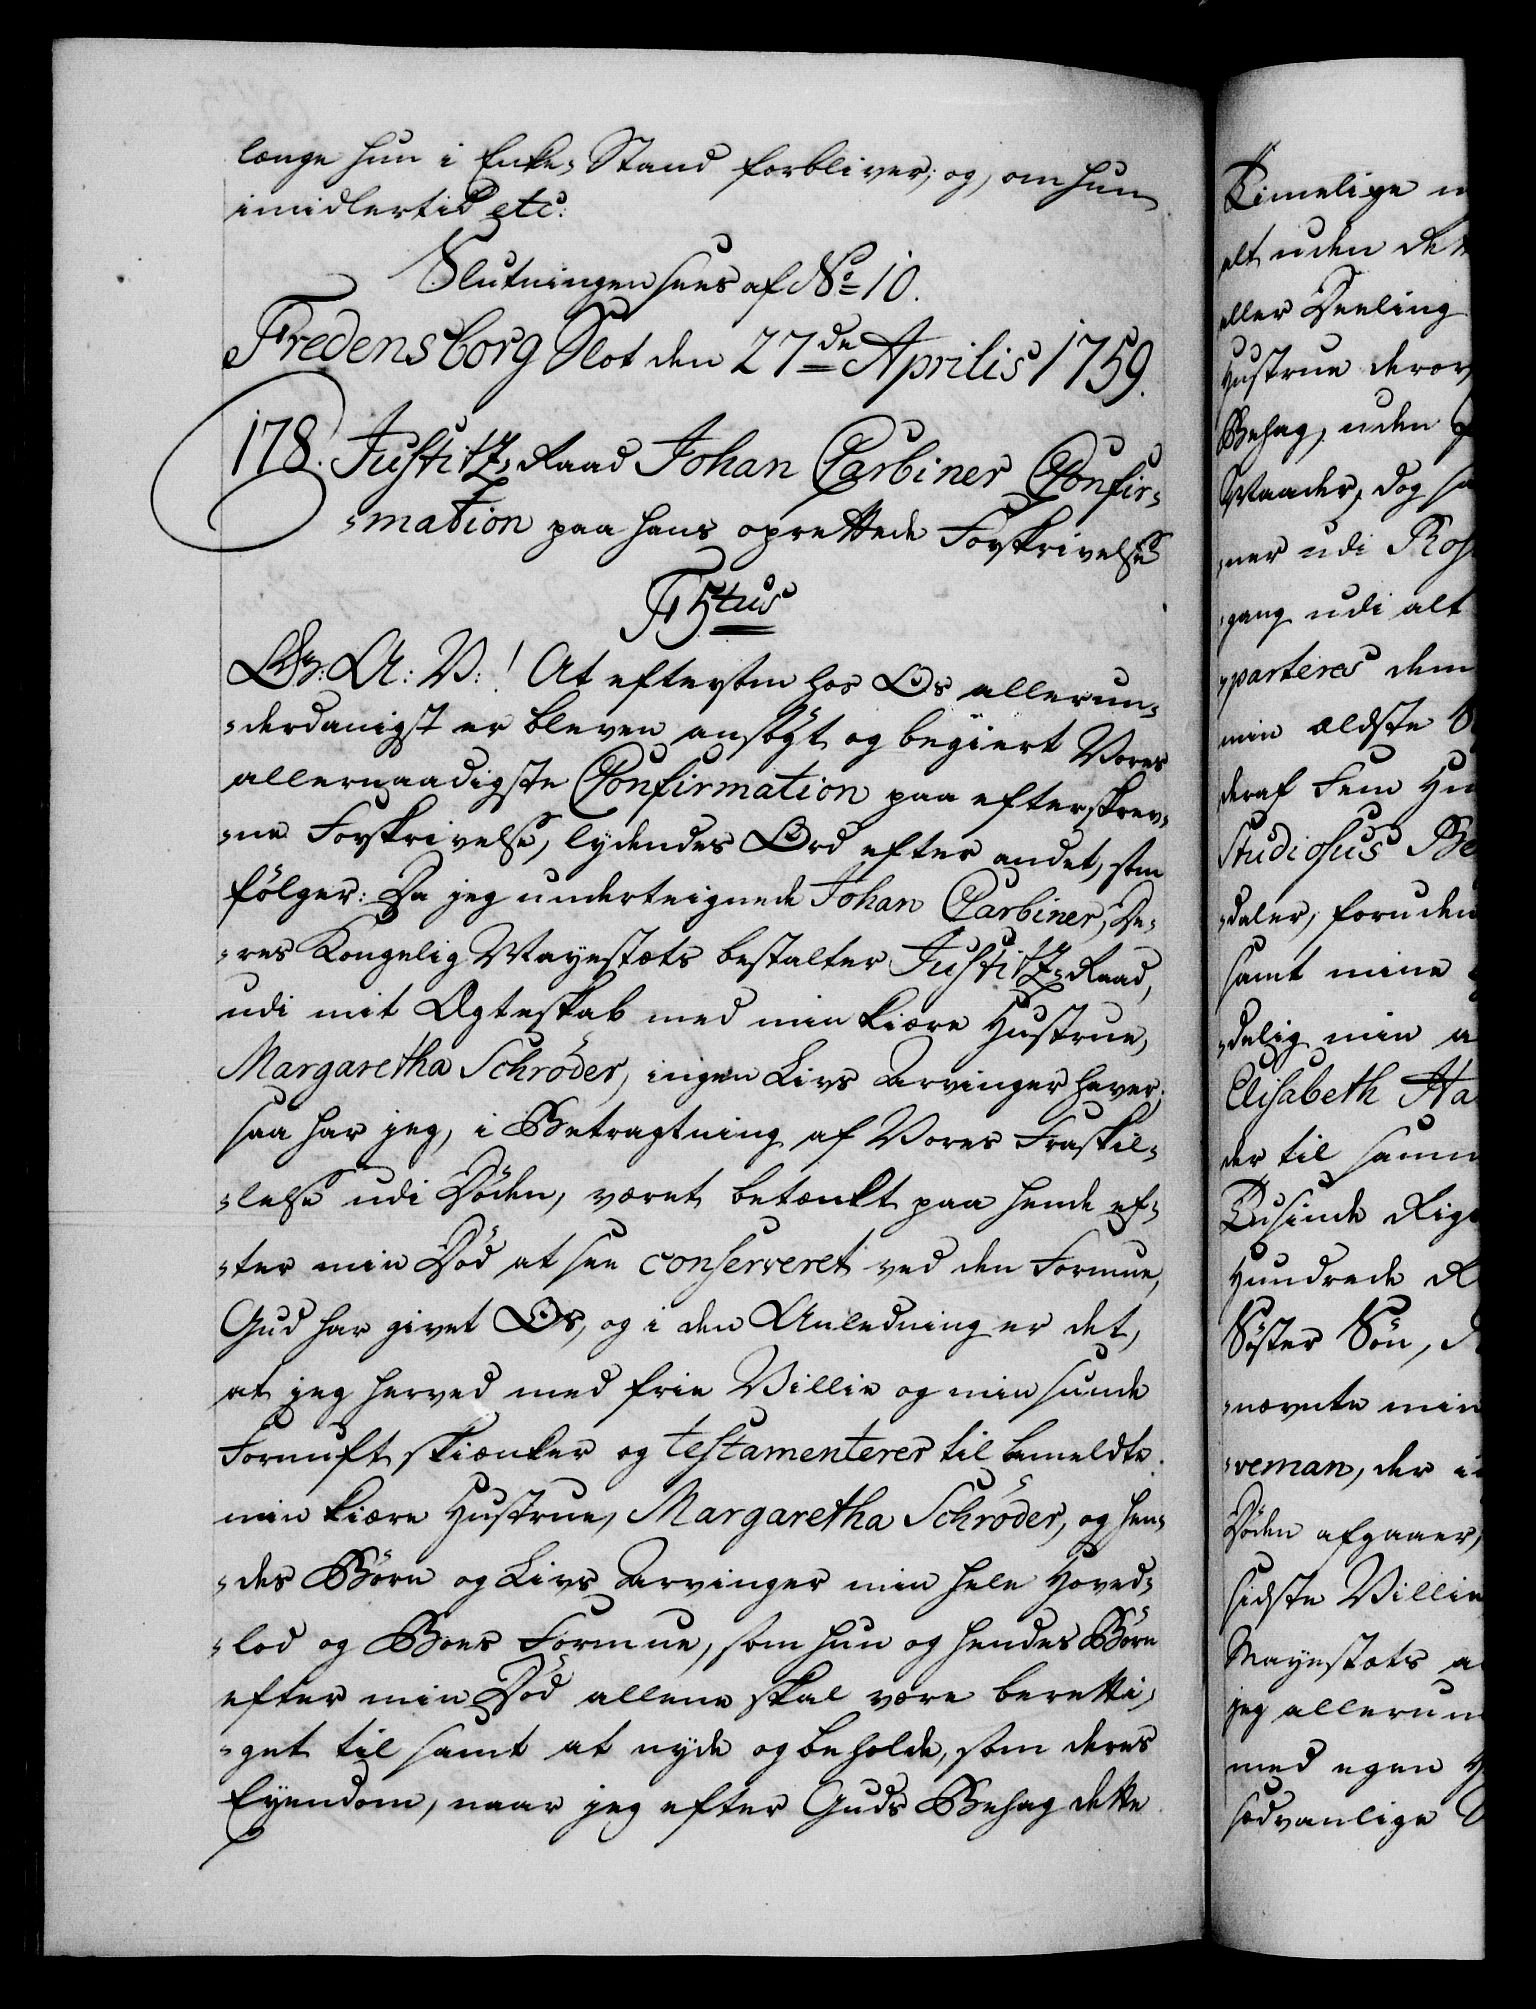 længe hun i Enke-Stand forbliver; og, om hun
imidlertid etc:
Slutningen sees af No 10.
Fredensborg Slot den 27de Aprilis 1759.
178. Justitz-Raad Johan Carbiner Confir-
-mation paa hans oprettede Forskrivelse
Gr: A: V:! At eftersom hos Os allerun-
-derdanigst er bleven ansögt og begiert Vores
allernaadigste Confirmation paa efterskrev-
-ne Forskrivelse, lydendes Ord efter andet, som
fölger: Da jeg underteignede Johan Carbiner, De-
-res Kongelig Mayestæts bestalter Justitz-Raad,
udi mit Ægteskab med min kiære Hustrue,
Margaretha Schröder, ingen Livs Arvinger haver;
saa har jeg, i Betragtning af Vores Fraskil-
-lelse udi Döden, været betænkt paa hende ef-
-ter min Död at see conserveret ved den Formue,
Gud har givet Os, og i den Anledning er det,
at jeg herved med frie Villie og min sunde
Fornuft skiænker og testamenterer til bemeldte
min kiære Hustrue, Margaretha Schröder, og hen-
-des Börn og Livs Arvinger min hele Hoved-
-lod og Boes Formue, som hun og hendes Börn
efter min Död allene skal være beretti-
-get til samt at nyde og beholde, som deres
Eyendom, naar jeg efter Guds Behag dette
Timelige
alt uden
eller Deeling
Hustrue
Behag, uden
Maader, dog
-ner udi
-gang udi alt
-parteres dem
min ældste
deraf Fem
Studiosus
-daler, foruden
samt mine
-delig min
Elisabeth
der til
Tusinde
Hundrede
Söster Sön,
-nævnte min
-veman, der
Döden afgaaer,
sidste Villie
Mayestæts
jeg
med egen
sædvanlige